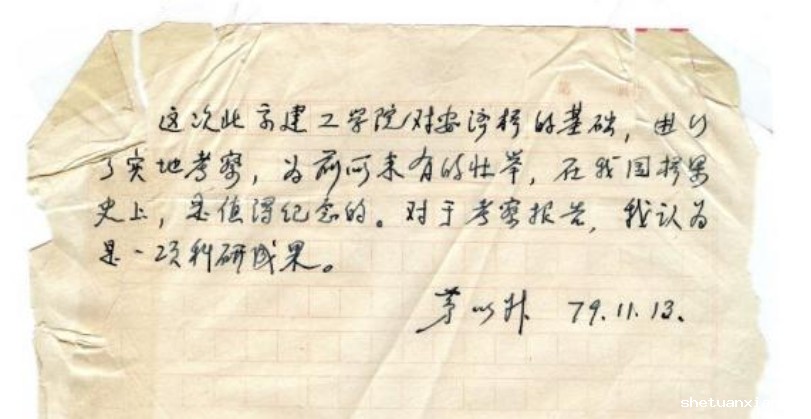 第 页
这次北京建工学院对安济桥的基础，进行
了实地考察，为前所未有的壮举，在我国桥梁
史上，是值得纪念的。对于考察报告，我认为
是一项科研成果。
茅以升 79.11.13.
shetuanxi